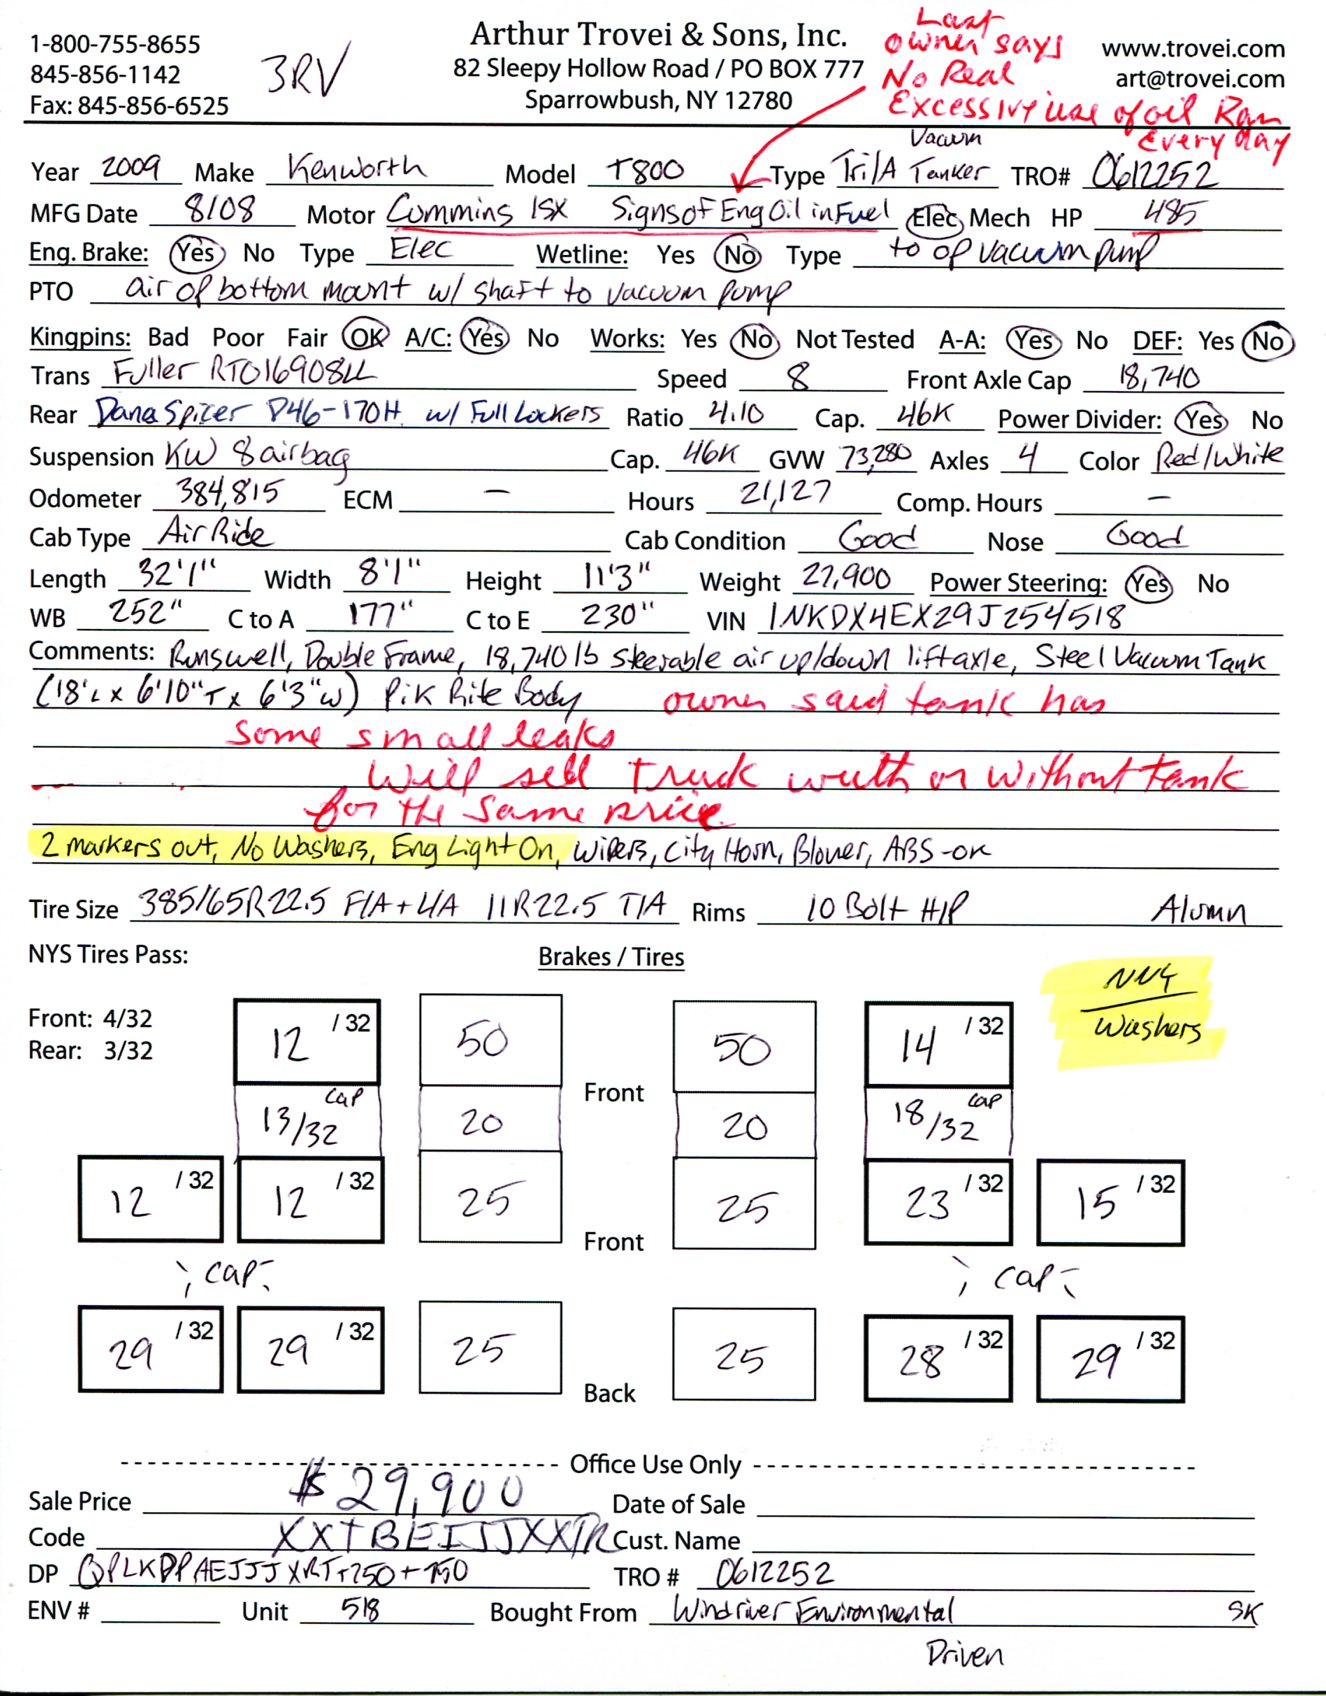 1-800-755-8655
845-856-1142
Fax: 845-856-6525
3RV
Arthur Trovei & Sons, Inc.
82 Sleepy Hollow Road / PO BOX 777
Sparrowbush, NY 12780
Last
owner says
No Real
Excessive use of oil Ran
Every day
www.trovei.com
art@trovei.com
Vacuum
Year 2009 Make Kenworth Model T800 Type Tri/A Tanker TRO# 0612252
MFG Date 8/08 Motor Cummins ISX Signs of Eng Oil in Fuel Elec Mech HP 485
Eng. Brake: Yes No Type Elec Wetline: Yes No Type to op vacuum pump
PTO air op bottom mount w/ shaft to vacuum pump
Kingpins: Bad Poor Fair OK A/C: Yes No Works: Yes No Not Tested A-A: Yes No DEF: Yes No
Trans Fuller RTO16908LL Speed 8 Front Axle Cap 18,740
Rear Dana Spicer D46-170H w/ Full Lockers Ratio 4.10 Cap. 46K Power Divider: Yes No
Suspension KW 8 airbag Cap. 46K GVW 73,280 Axles 4 Color Red/White
Odometer 384,815 ECM – Hours 21,127 Comp. Hours –
Cab Type Air Ride Cab Condition Good Nose Good
Length 32'1" Width 8'1" Height 11'3" Weight 27,900 Power Steering: Yes No
WB 252" C to A 177" C to E 230" VIN 1NKDX4EX29J254518
Comments: Runs well, Double Frame, 18,740 lb steerable air up/down lift axle, Steel Vacuum Tank
(18'L x 6'10"T x 6'3"W) Pik Rite Body owner said tank has
some small leaks
Will sell truck with or without tank
for the same price
2 markers out, No Washers, Eng Light On, Wipers, City Horn, Blower, ABS-OK
Tire Size 385/65R22.5 F/A + L/A 11R22.5 T/A Rims 10 Bolt H/P Alumn
NYS Tires Pass: Brakes / Tires
NNY
Washers
Front: 4/32
Rear: 3/32
12 /32 50 Front 50 14 /32
13/32 cap 20 20 18/32 cap
12 /32 12 /32 25 Front 25 23 /32 15 /32
cap cap
29 /32 29 /32 25 Back 25 28 /32 29 /32
Office Use Only
Sale Price $29,900 Date of Sale
Code XXTBEIJJXXTR Cust. Name
DP QPLKDPAEJJJXRT+250+750 TRO # 0612252
ENV # Unit 518 Bought From Windriver Environmental SK
Driven